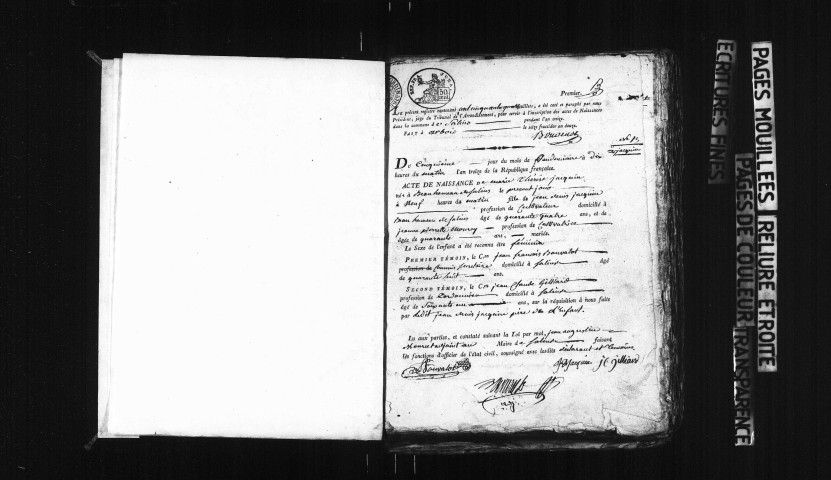 Premier
Le présent registre contenant cent cinquante quatre feuillets, a été coté et paraphé par nous
Président, juge du Tribunal de l'Arrondissement, pour servir à l'inscription des actes de Naissances
dans la commune de Salins pendant l'an treize.
Fait à Arbois le seize fructidor an douze.
n.º 1er
Jacquin
Du Cinquième jour du mois de Vendémiaire à dix
heures du matin l'an treize de la République française.
ACTE DE NAISSANCE de marie Thérèse jacquin
née à le présent jour
à Neuf heures du matin fille de jean Denis jacquin
profession de Cultivateur domicilié à
âgé de quarante quatre ans, et de
jeanne pierrette profession de Cultivatrice
âgée de quarante ans, mariés.
Le Sexe de l'enfant a été reconnu être féminin
PREMIER TÉMOIN, le C.en jean françois Bouvalot
profession de Commis secrétaire domicilié à Salins âgé
de quarante huit ans.
SECOND TÉMOIN, le C.en jean Claude Gilliard
profession de Cordonnier domicilié à Salins
âgé de Soixante un ans, sur la réquisition à nous faite
par ledit jean denis jacquin père de l'enfant.
Lu aux parties, et constaté suivant la Loi par moi, jean augustin
adjoint au Maire de Salins faisant
les fonctions d'officier de l'état civil, soussigné avec lesdits déclarant et témoins
Bouvalot Jacquin j C gilliard
PAGES MOUILLEES RELIURE ETROITE
PAGES DE COULEUR TRANSPARENCE
ECRITURES FINES